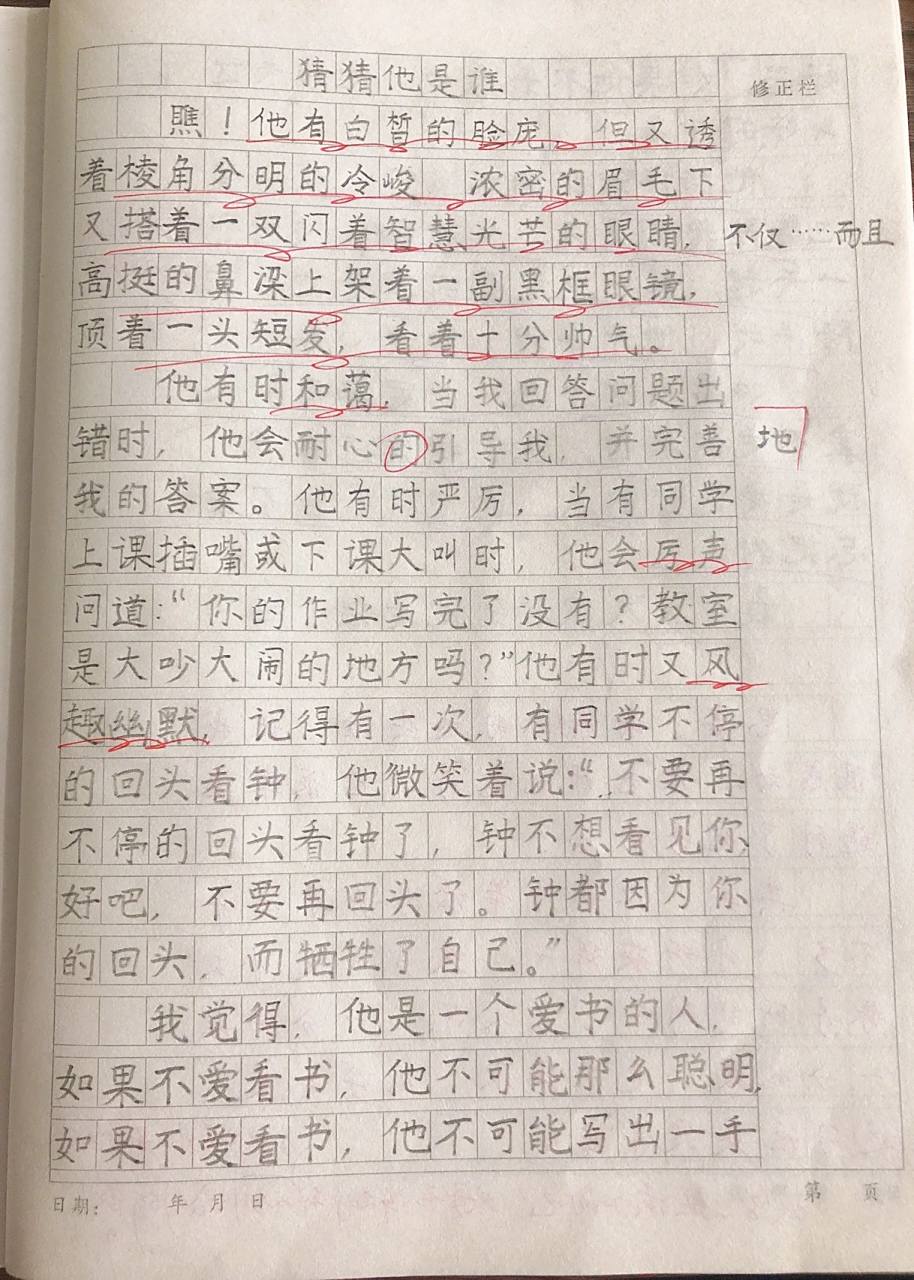 猜猜他是谁
修正栏
瞧！他有白皙的脸庞，但又透
着棱角分明的冷峻，浓密的眉毛下
又搭着一双闪着智慧光芒的眼睛，
不仅……而且
高挺的鼻梁上架着一副黑框眼镜，
顶着一头短发，看着十分帅气。
他有时和蔼，当我回答问题出
错时，他会耐心的引导我，并完善
地
我的答案。他有时严厉，当有同学
上课插嘴或下课大叫时，他会厉声
问道：“你的作业写完了没有？教室
是大吵大闹的地方吗？”他有时又风
趣幽默，记得有一次，有同学不停
的回头看钟，他微笑着说：“不要再
不停的回头看钟了，钟不想看见你，
好吧，不要再回头了。钟都因为你
的回头，而牺牲了自己。”
我觉得，他是一个爱书的人，
如果不爱看书，他不可能那么聪明，
如果不爱看书，他不可能写出一手
日期： 年 月 日
第 页